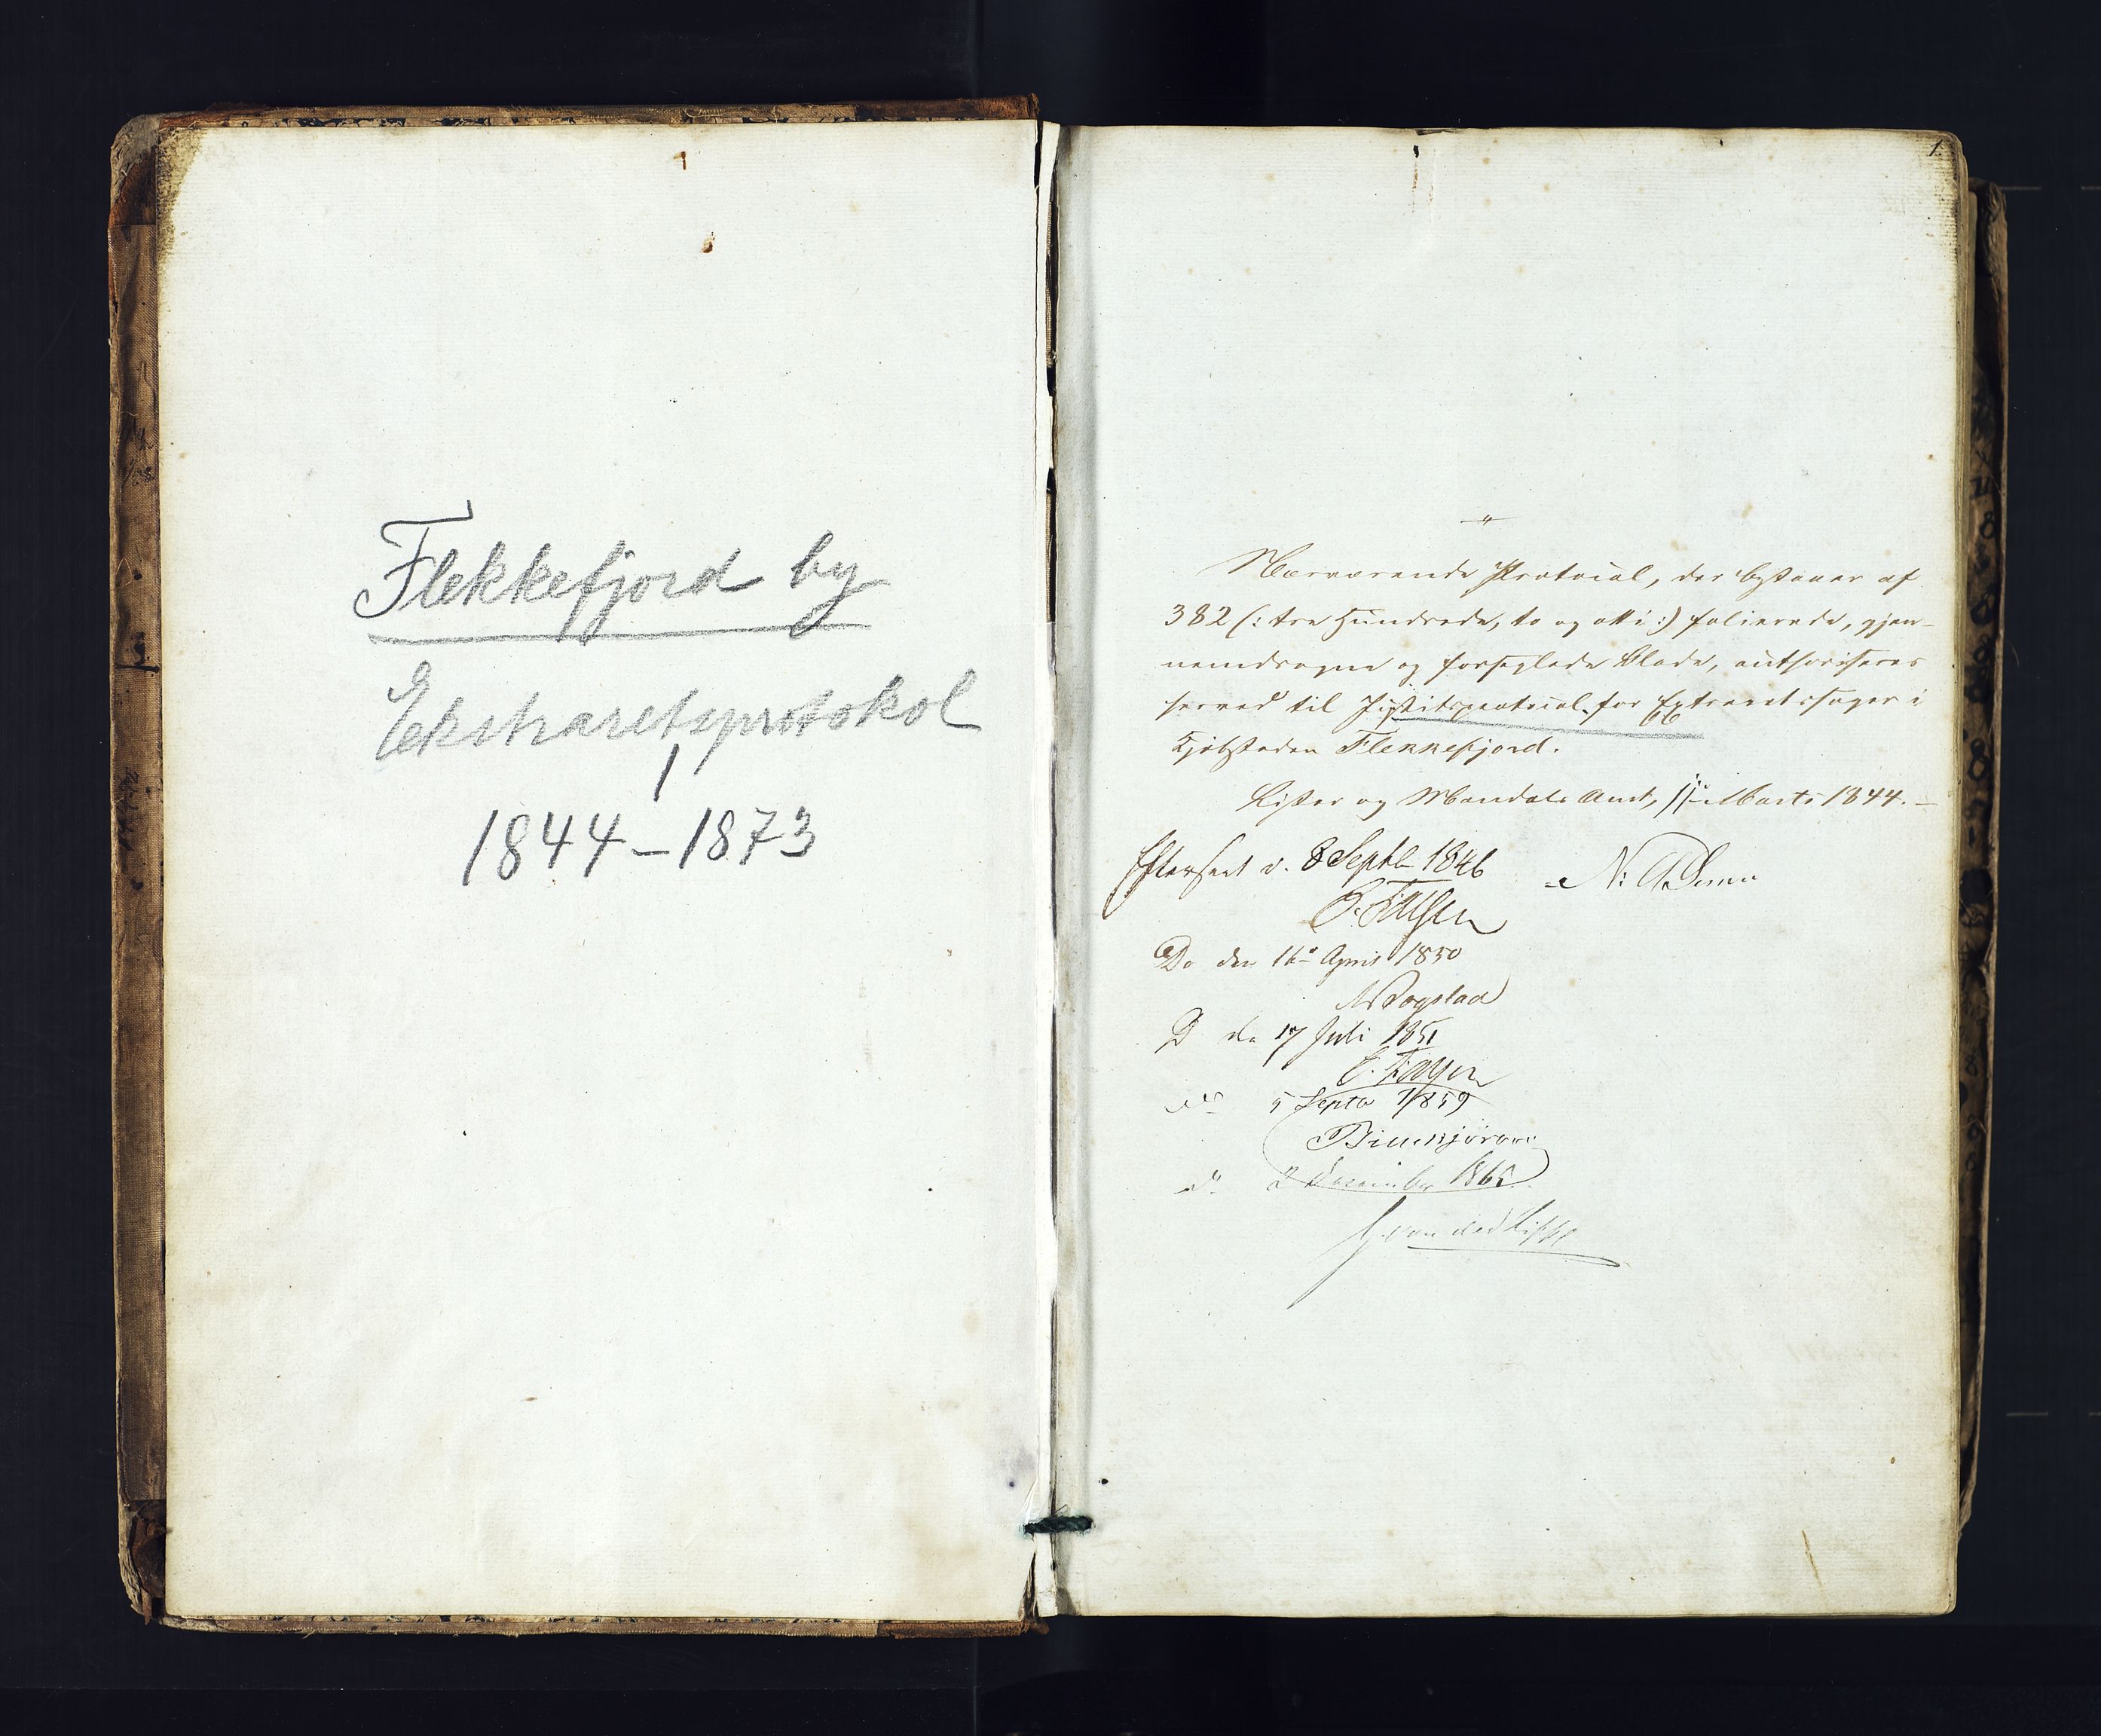 Flekkefjord by
Ekstraretsprotokol
1844–1873
1.
Nærværende Protocol, der bestaaer af
382 (: tre Hundrede, to og otti :) folierede, gjen-
nemdragne og forseglede Blade, authoriseres
herved til Justitsprotocol for Extraretssager i
Kjøbstaden Flekkefjord.
Lister og Mandals Amt, Marts 1844. –
Efterseet d. 8 Septb 1846
Do den 16de April 1850
D de 17 Juli 1851
do 5 Septb 1859
do 2 December 1865
G. van der Lippe